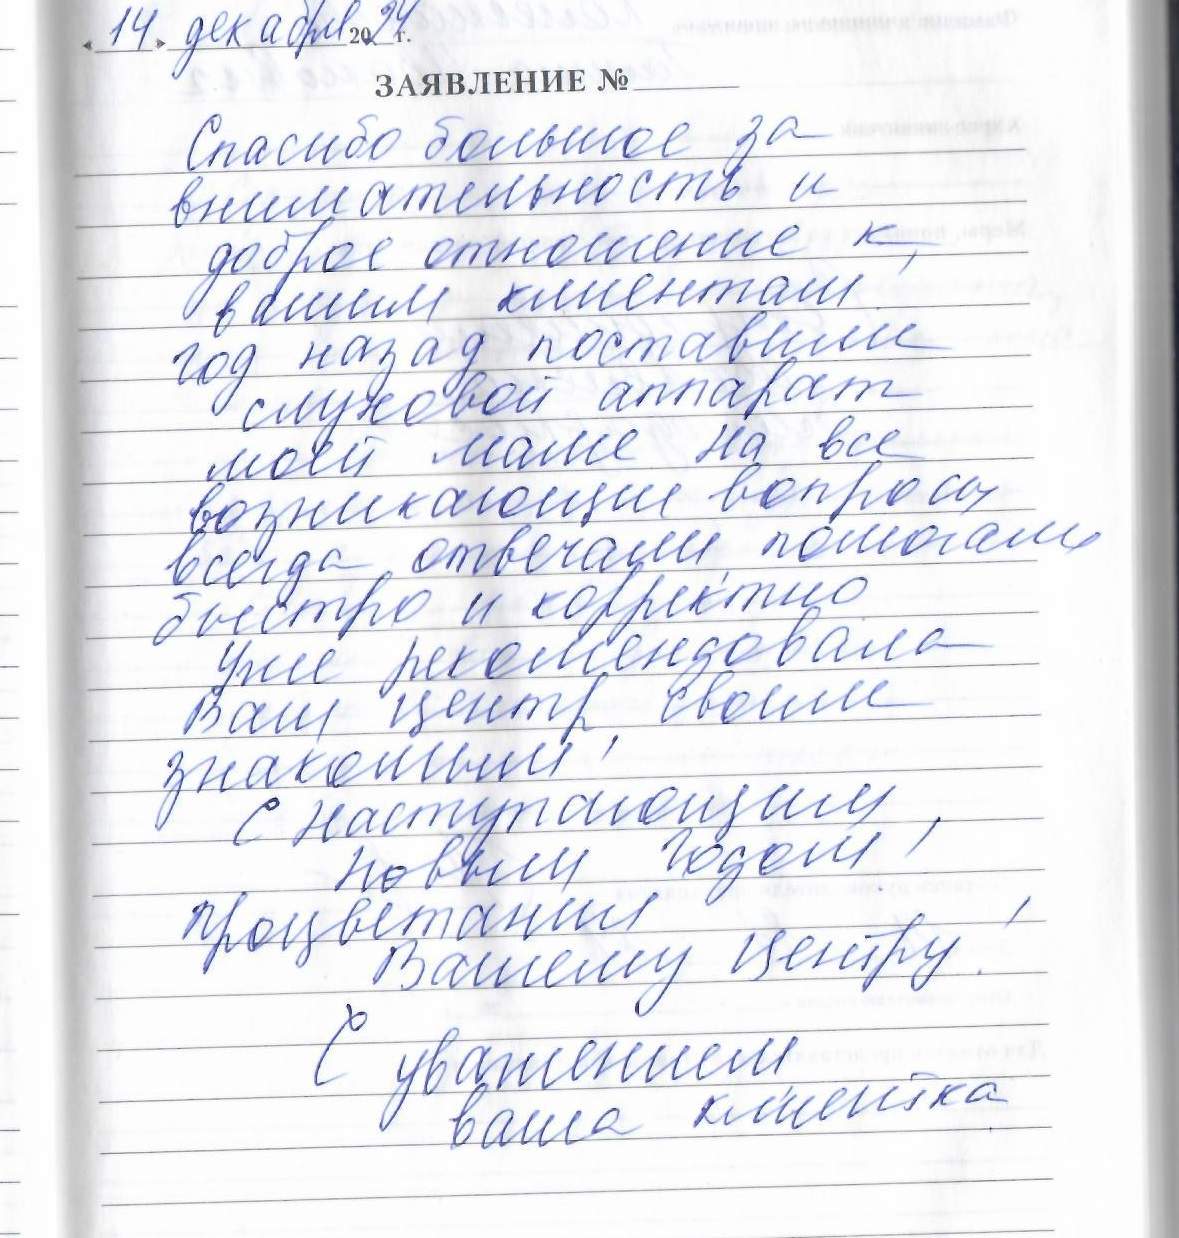 «14» декабря 2024 г.
ЗАЯВЛЕНИЕ №
Спасибо большое за
внимательность и
доброе отношение к
вашим клиентам!
год назад поставили
слуховой аппарат
моей маме на все
возникающие вопросы
всегда отвечали, помогали
быстро и корректно
Уже рекомендовала
Ваш центр своим
знакомым!
С наступающим
Новым Годом!
процветания
Вашему Центру!
С уважением
ваша клиентка